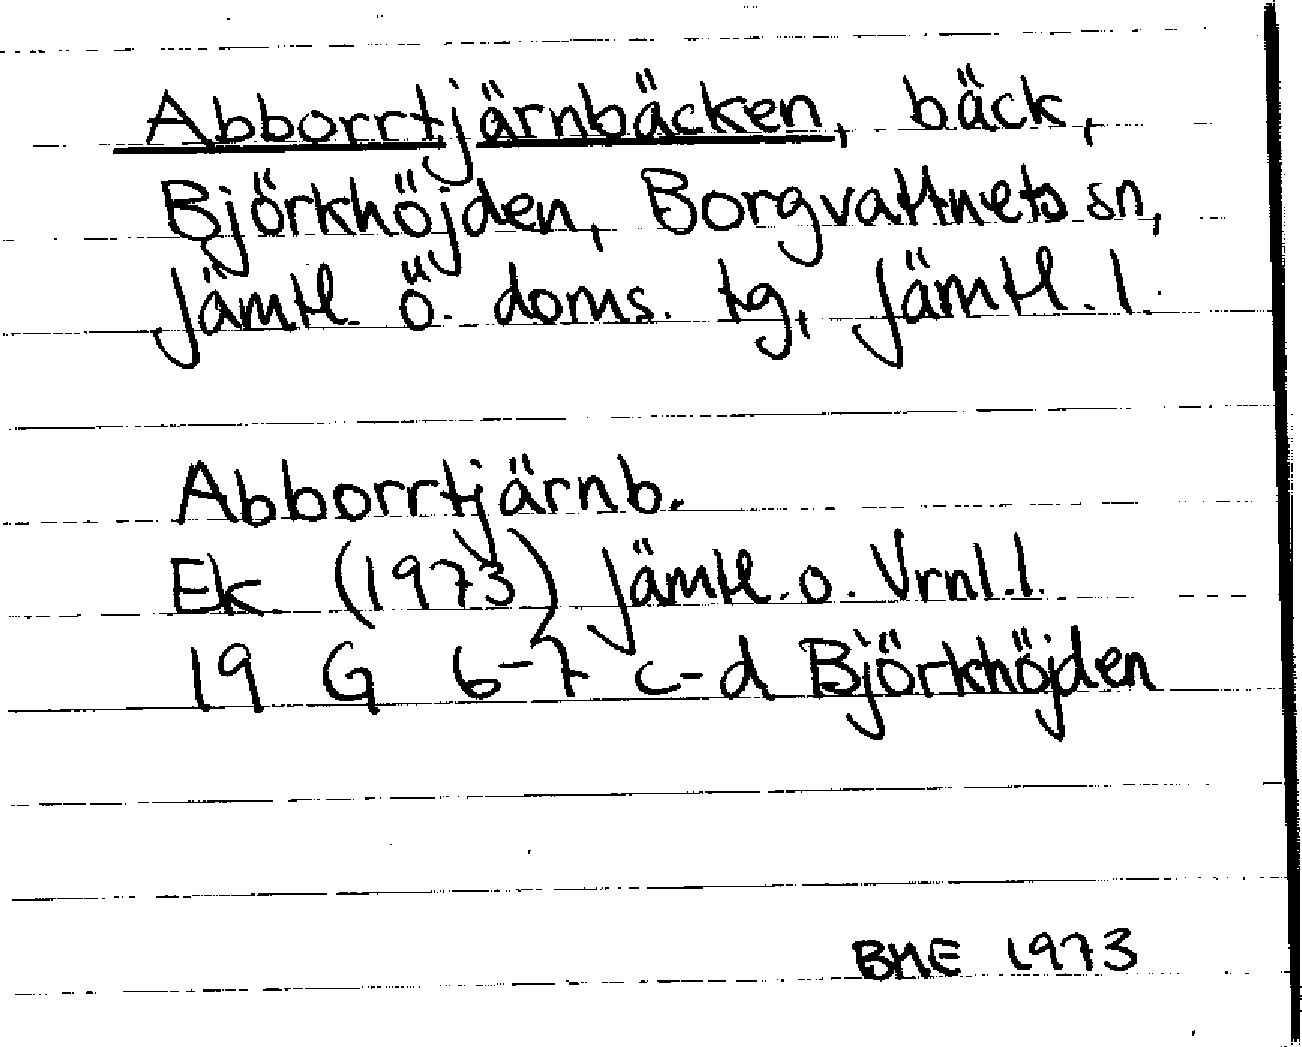 Abborrtjärnbäcken, bäck,
Björkhöjden, Borgvattnets sn,
Jämtl. ö. doms. tg, Jämtl. l.
Abborrtjärnb.
Ek (1973) Jämtl. o. Vrnl. l.
19 G 6-7 c-d Björkhöjden
1973